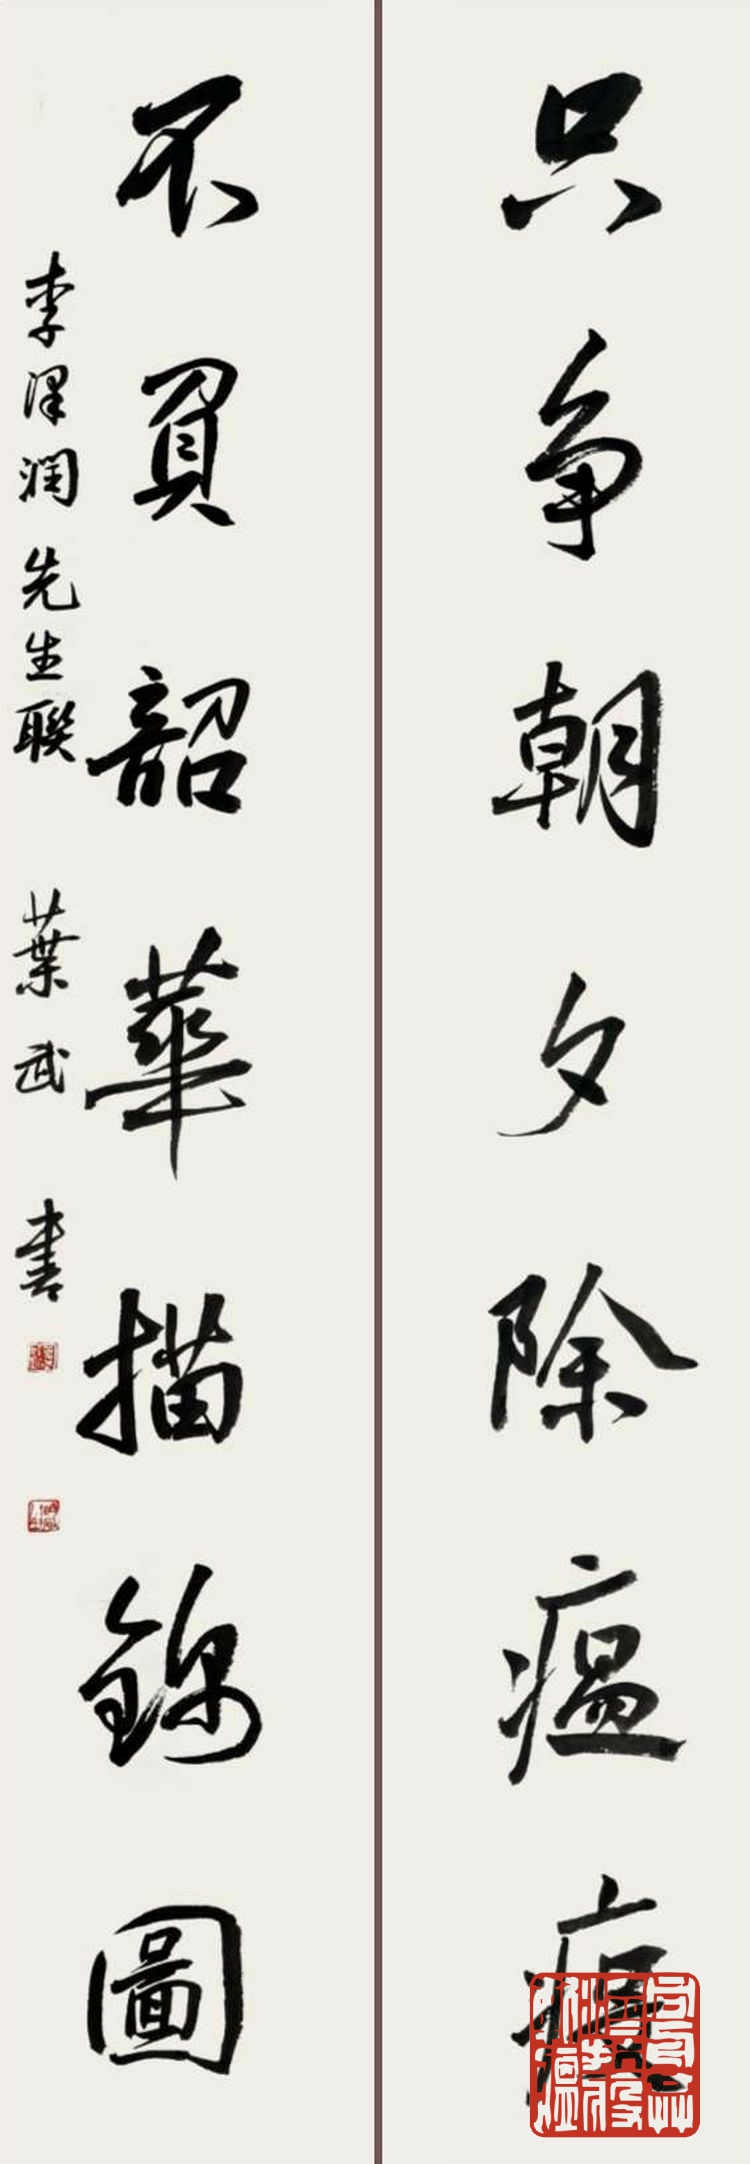 只争朝夕除瘟
不負韶華描錦圖
李泽潤先生聯 葉武 書